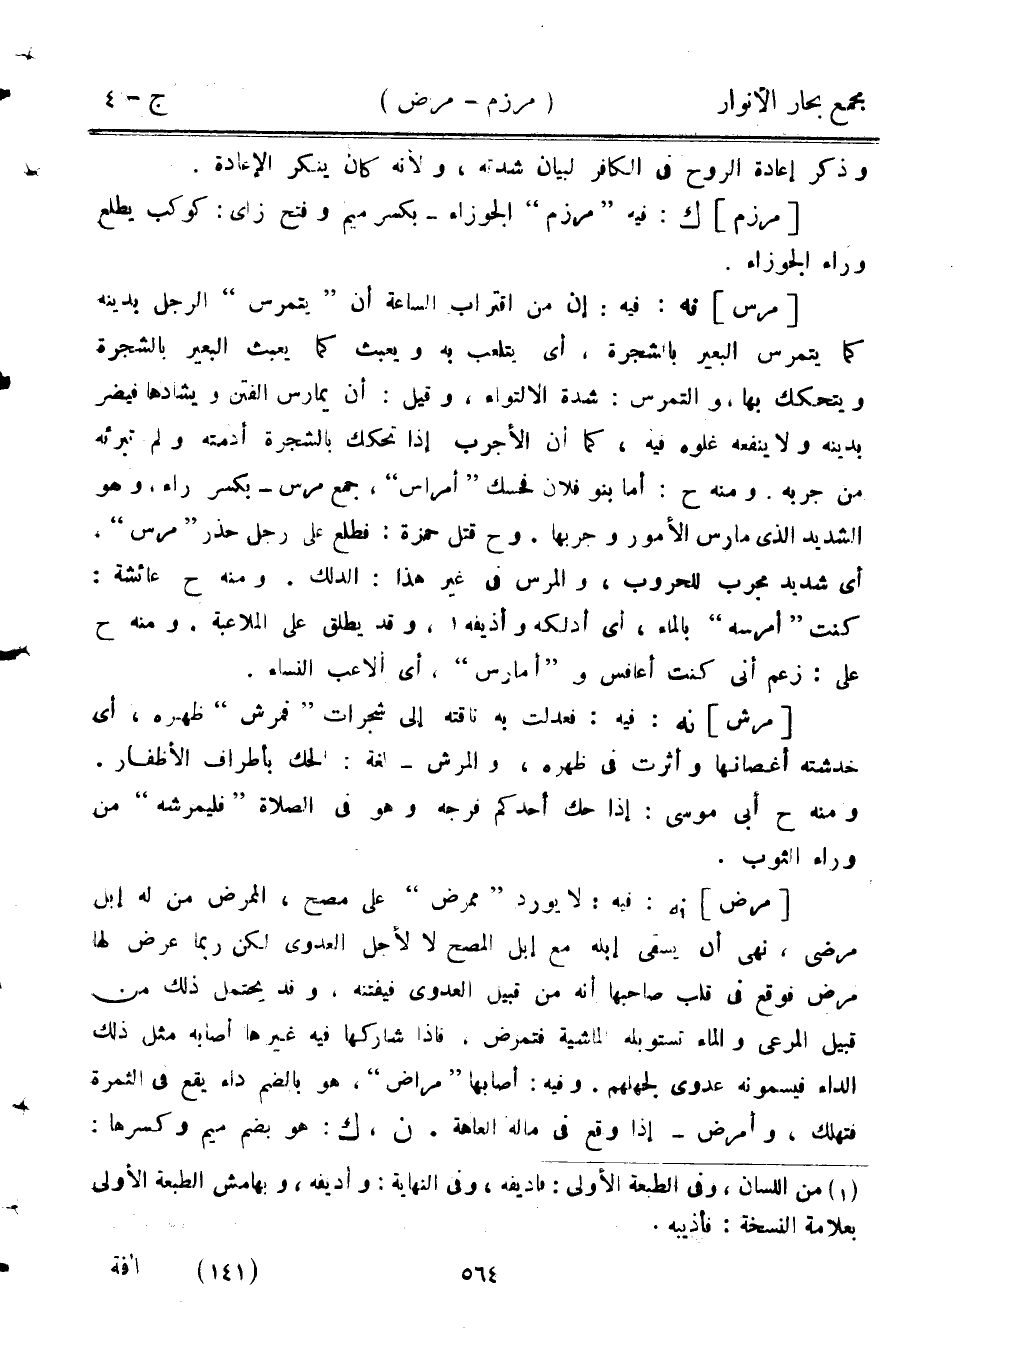 مجمع بحار الأنوار ( مرزم - مرض ) ج - ٤
و ذكر إعادة الروح فى الكافر لبيان شدته ، و لأنه كان ينكر الإعادة .
[ مرزم ] ك : فيه ”مرزم“ الجوزاء - بكسر ميم و فتح زاى : كوكب يطلع
وراء الجوزاء .
[ مرس ] نه : فيه : إن من اقتراب الساعة أن ”يتمرس“ الرجل بدينه
كما يتمرس البعير بالشجرة ، أى يتلعب به و يعبث كما يعبث البعير بالشجرة
و يتحكك بها ، و التمرس : شدة الالتواء ، و قيل : أن يمارس الفتن و يشادها فيضر
بدينه و لا ينفعه غلوه فيه ، كما أن الأجرب إذا تحكك بالشجرة أدمته و لم تبرئه
من جربه . و منه ح : أما بنو فلان فحسك ”أمراس“ ، جمع مرس - بكسر راء ، و هو
الشديد الذى مارس الأمور و جربها . و ح قتل حمزة : فطلع على رجل حذر ”مرس“ ،
أى شديد مجرب للحروب ، و المرس فى غير هذا : الدلك . و منه ح عائشة :
كنت ”أمرسه“ بالماء ، أى أدلكه و أذيفه١ ، و قد يطلق على الملاعبة . و منه ح
على : زعم أنى كنت أعافس و ”أمارس“ ، أى ألاعب النساء .
[ مرش ] نه : فيه : فعدلت به ناقته إلى شجرات ”فمرش“ ظهره ، أى
خدشته أغصانها و أثرت فى ظهره ، و المرش - لغة : الحك بأطراف الأظفار .
و منه ح أبى موسى : إذا حك أحدكم فرجه و هو فى الصلاة ”فليمرشه“ من
وراء الثوب .
[ مرض ] نه : فيه : لا يورد ”ممرض“ على مصح ، الممرض من له إبل
مرضى ، نهى أن يسقى إبله مع إبل المصح لا لأجل العدوى لكن ربما عرض لها
مرض فوقع فى قلب صاحبها أنه من قبيل العدوى فيفتنه ، و قد يحتمل ذلك من
قبيل المرعى و الماء تستوبله الماشية فتمرض ، فاذا شاركها فيه غيرها أصابه مثل ذلك
الداء فيسمونه عدوى لجهلهم . و فيه : أصابها ”مراض“ ، هو بالضم داء يقع فى الثمرة
فتهلك ، و أمرض - إذا وقع فى ماله العاهة . ن ، ك : هو بضم ميم و كسرها :
(١) من اللسان ، وفى الطبعة الأولى : فاديفه ، وفى النهاية : و أديفه ، و بهامش الطبعة الأولى
بعلامة النسخة : فأذيبه .
٥٦٤ (١٤١) آفة